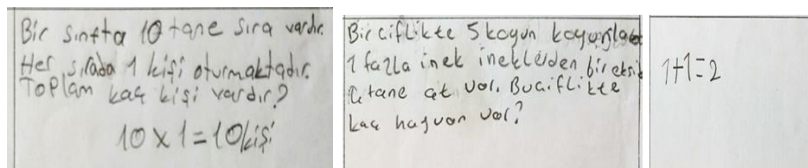 Bir sınıfta 10 tane sıra vardır.
Her sırada 1 kişi oturmaktadır.
Toplam kaç kişi vardır?
10 x 1 = 10 kişi
Bir ciflikte 5 koyun koyunlardan
1 fazla inek ineklerden bir eksik
tane at var. Bu ciflikte
kaç hayvan var?
1+1=2